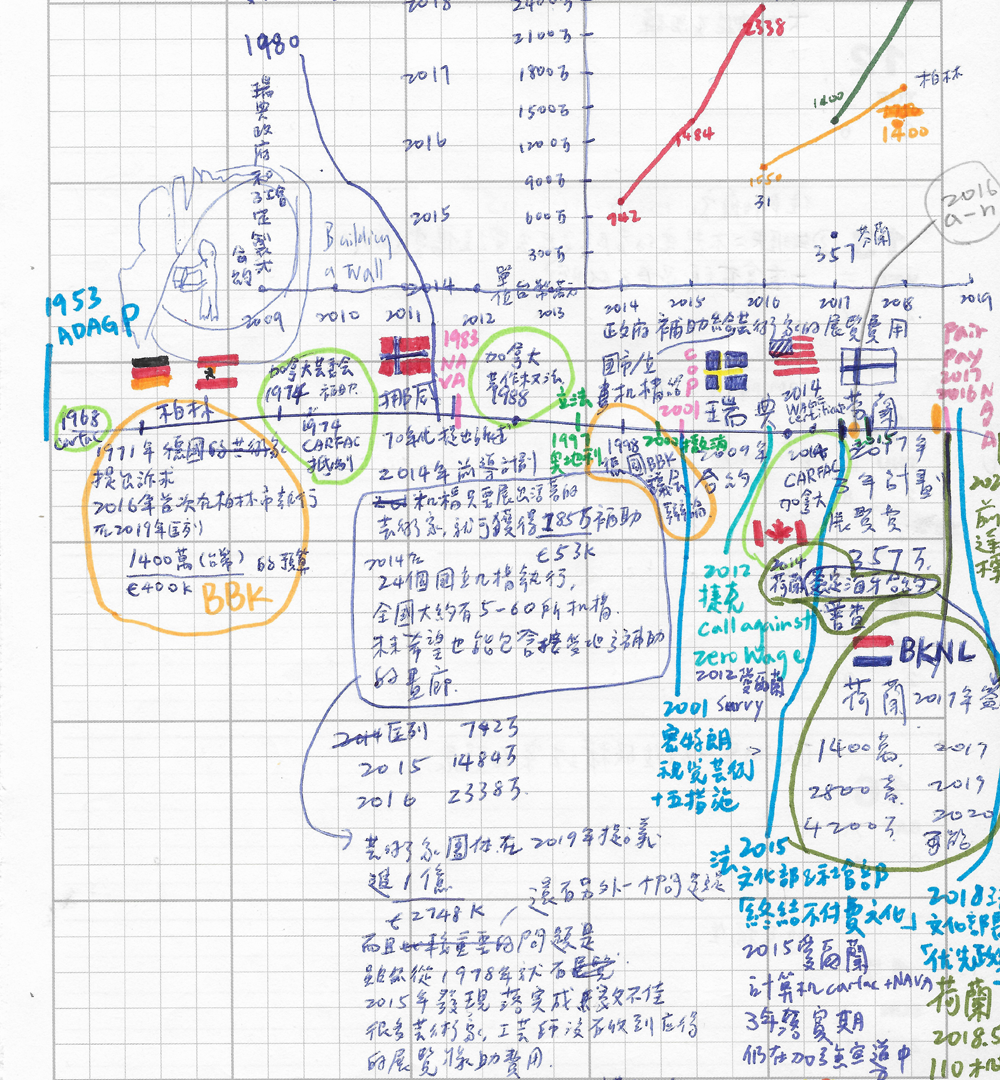 2018
2400万
2338
1980
2100万
2017
1800万
柏林
1500万
1400
1484
1400
2016
1200万
瑞典政府和
定製式
合約
900万
1550
31
2016
a-n
942
2015
600万
357
芬蘭
Building
a Wall
300万
2014
單位台幣萬元
2009
2010
2011
2012
2013
2014
2015
2016
2017
2018
2019
1953
ADAGP
政府補助給藝術家的展覽費用
1983
NAVA
加拿大
著作权法
1988
國市/立
COPY
2001
pair
pay
2017
2016
NAVA
加拿大芸委会
1974
1968
carfac
柏林
挪威
立法
1997
奧地利
瑞典
2014
WAGE
芬蘭
1974
CARFAC
抵制
70年代提出訴求
1998
德國BBK
議会
辯論
2009年
合約
2014
CARFAC
加拿大
2015
2017年
3年計畫
展覽費
357万
1971年德國的芸術家
提出訴求
2016年首次在柏林市執行
在2019年匡列
1400萬(台幣)的預算
€400k
BBK
2014年前導計劃
机構只要展出活著的
芸術家,就可獲得185万補助
2014在
€53K
24個國立机構執行,
全國大約有5-60所机構.
未來希望也能包含接受地方補助
的畫廊.
2012
捷克
call against
zero wage
2012愛爾蘭
survy
2014
荷蘭
普查
BKNL
荷蘭
2017年簽
1400萬
2017
2800萬
2019
4200万
2020
可能
2001
密特朗
視覚芸術
十五措施
2014匡列
742万
2015
1484万
2016
2338万
芸術家團体在2019年提議
進1億
€2748K
還有另外一个問題是
而且較重要的問題是
雖然從1978年就有展覽
2015年發現落實成效不佳
很多芸術家,工芸師沒有收到应得
的展覽依助費用.
法2015
文化部&社会部
「終結不付費文化」
2015愛爾蘭
計算机carfac+NAVA
3年落實期
仍在加強宣導中
2018
文化部長
「优先政
荷蘭
2018.5
110机